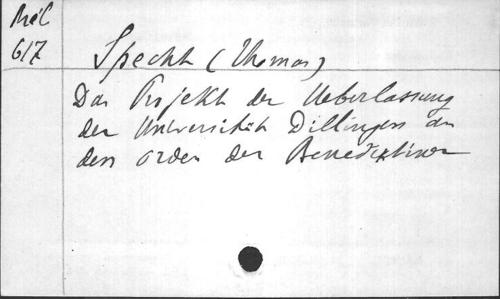 Mél
617
Specht (Thomas)
Das Projekt der Ueberlassung
der Universität Dillingen an
den Orden der Benediktiner